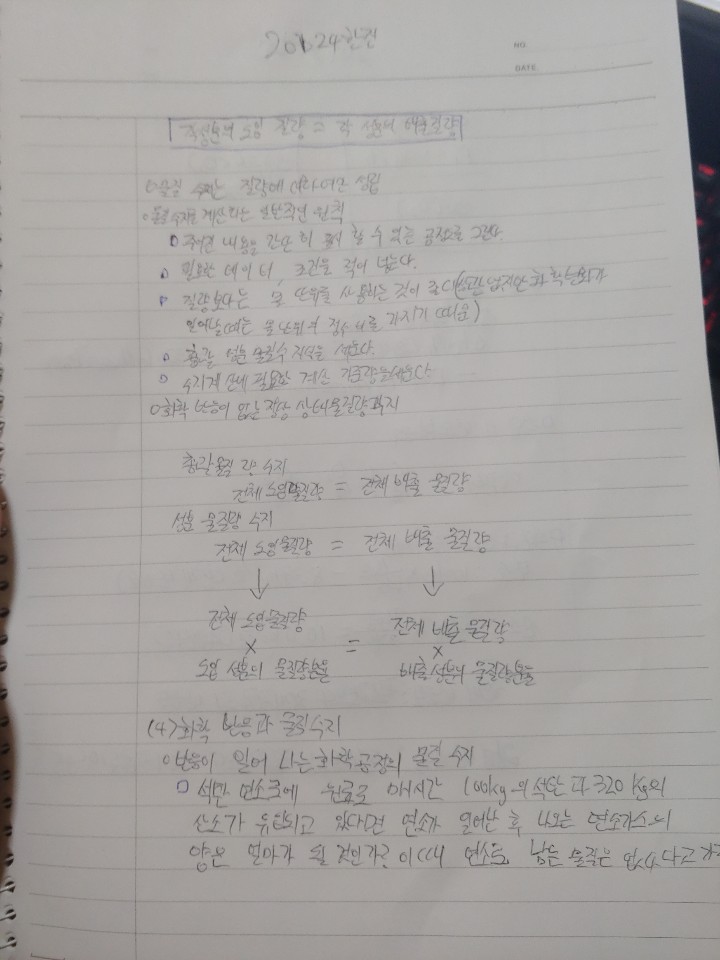 NO.
DATE.
각 성분의 유입 질량 = 각 성분의 배출질량
○물질 수지는 질량에 대하여만 성립
○물질수지를 계산하는 일반적인 원칙
주어진 내용을 간단히 표시 할 수 있는 공정으로 그린다.
필요한 데이터, 조건을 적어 넣는다.
질량보다는 몰 단위를 사용하는 것이 좋다(
일어날때는 몰 단위가 정수비를 가지기 때문)
총괄 성분 물질수지식을 세운다.
수지계산에 필요한 계산 기준량을 세운다.
○화학 반응이 없는 정상 상태 물질량 수지
총괄 물질량 수지
전체 유입물질량 = 전체 배출 물질량
성분 물질량 수지
전체 유입물질량 = 전체 배출 물질량
↓ ↓
전체 유입물질량 전체 배출 물질량
× = ×
유입 성분의 물질량분율 배출성분의 물질량분율
(4)화학 반응과 물질수지
○반응이 일어 나는 화학공정의 물질 수지
석탄 연소로에 원료로 매시간 100kg의 석탄과 320kg의
산소가 유입되고 있다면 연소가 일어난 후 나오는 연소가스의
양은 얼마가 될 것인가? 이때 연소되 남는 물질은 없다고